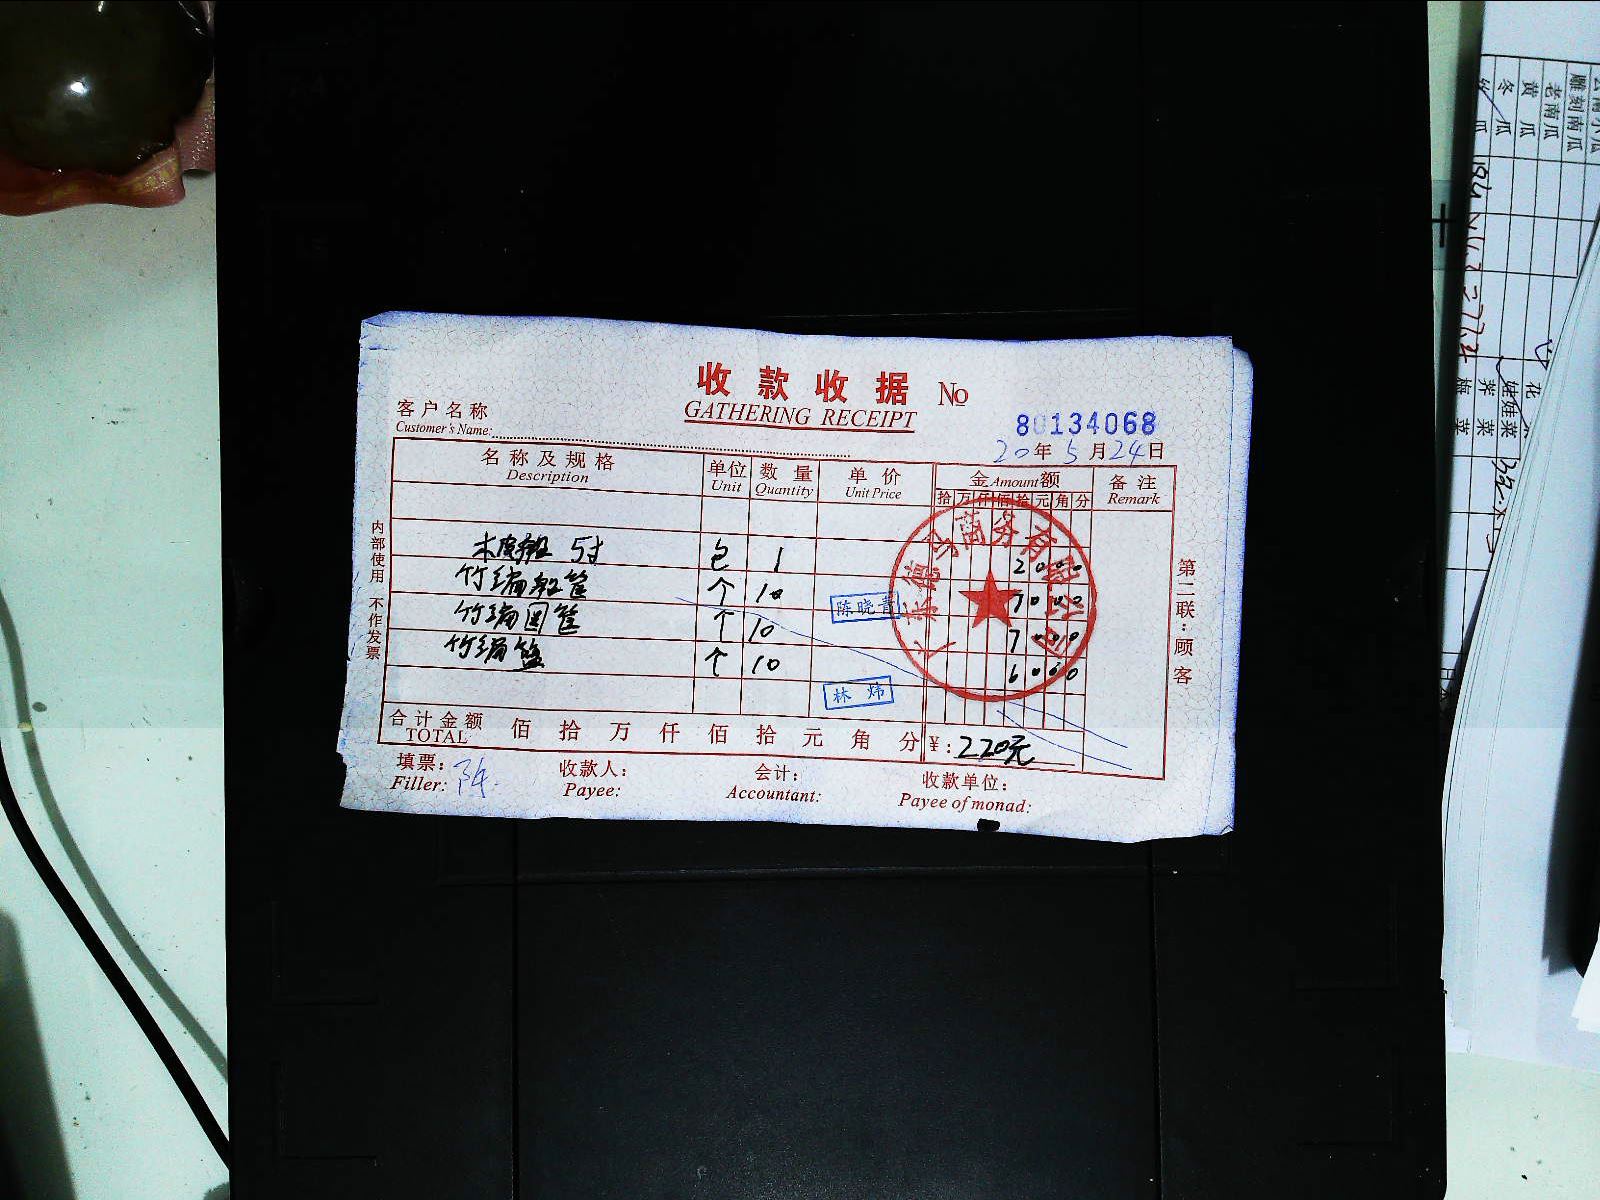 收款收据 No
GATHERING RECEIPT
80134068
客户名称
Customer's Name:
20年5月24日
名称及规格 单位 数量 单价 金额 备注
Description Unit Quantity Unit Price Amount Remark
拾万仟佰拾元角分
5寸 包 1 2000
竹编船筐 个 10 7000
竹编圆筐 个 10 7000
竹编篮 个 10 6000
陈晓青
林炜
商务有限公司
合计金额 佰 拾 万 仟 佰 拾 元 角 分 ¥: 220元
TOTAL
填票: 陈 收款人: 会计: 收款单位:
Filler: Payee: Accountant: Payee of monad:
内部使用 不作发票
第二联:顾客
雕刻南瓜
老南瓜
黄瓜
冬瓜
娃娃菜
荠菜